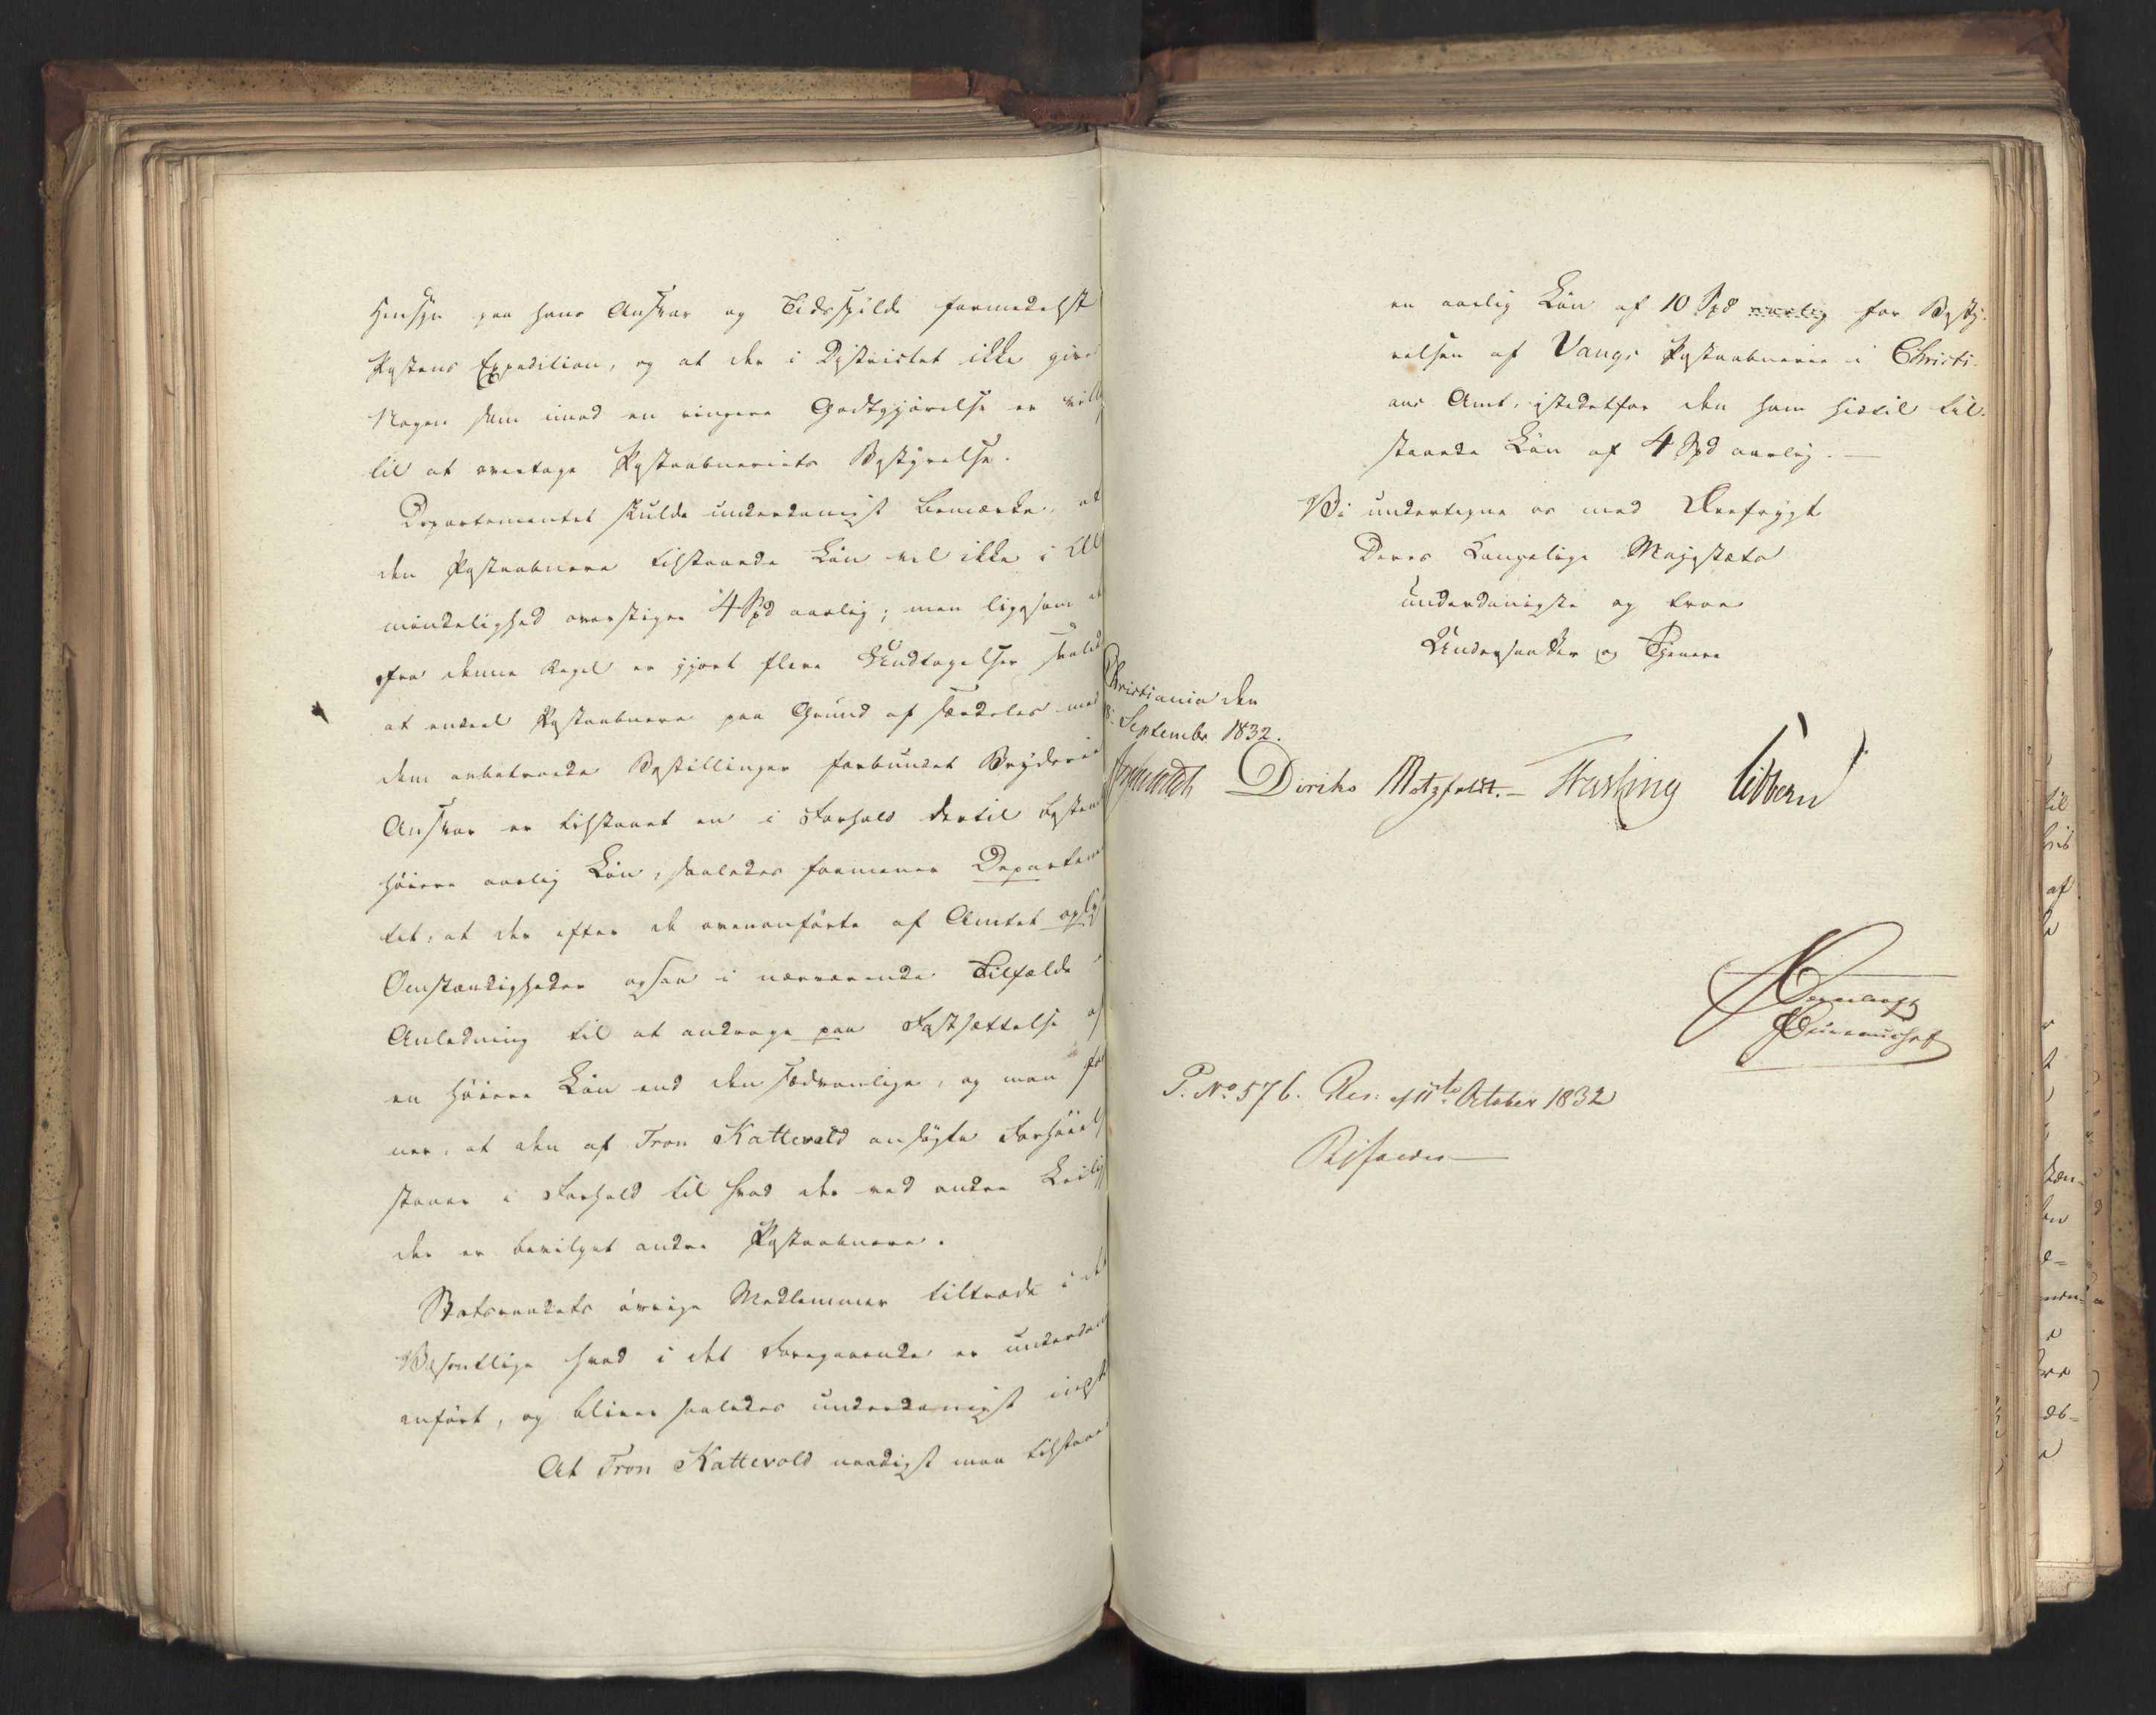 Hensyn paa hans Ansvar og Tidsspilde formedelst
Postens Expedition, og at der i Districtet ikke gives
Nogen som imod en ringere Godtgjörelse er vill
til at overtage Postaabneriets Bestyrelse.
Departementet skulde underdanigst bemærke, at
den Postaabnere tilstaaede Lön vel ikke i Al
mindelighed overstiger 4 Spd aarlig; men ligesom
fra denne Regel er gjort flere Undtagelser saaled
at endeel Postaabnere paa Grund af særdeles med
dem anbetroede Bestillinger forbundet Bryderie
Ansvar er tilstaaet en i Forhold dertil bestemt
höiere aarlig Lön, saaledes formener Departemen
tet, at der efter de ovenanförte af Amtet oply
Omstændigheder ogsaa i nærværende Tilfælde
Anledning til at andrage paa Fastsættelse af
en höiere Lön end den sædvanlige, og man for
ner, at den af Tron Kattevold ansögte Forhöiels
staaer i Forhold til hvad der ved andre Leilig
der er bevilget andre Postaabnere.
Statsraadets övrige Medlemmer tiltræde i det
Væsentlige hvad i det Foregaaende er underdan
anfört, og bliver saaledes underdanigst inst
At Tron Kattevold naadigst maa tilstaaes
en aarlig Lön af 10 Spd aarlig for Besty-
relsen af Vangs Postaabnerie i Christi-
ans Amt, istedetfor den ham hidtil til-
staaede Lön af 4 Spd aarlig. —
Vi undertegne os med Ærefrygt
Deres Kongelige Majestæts
underdanigste og troe
Undersaatter og Tjenere
Christiania den
September 1832.
Diriks Motzfeldt. — Fasting Sibbern
P. No 576. Res: af 11te October 1832